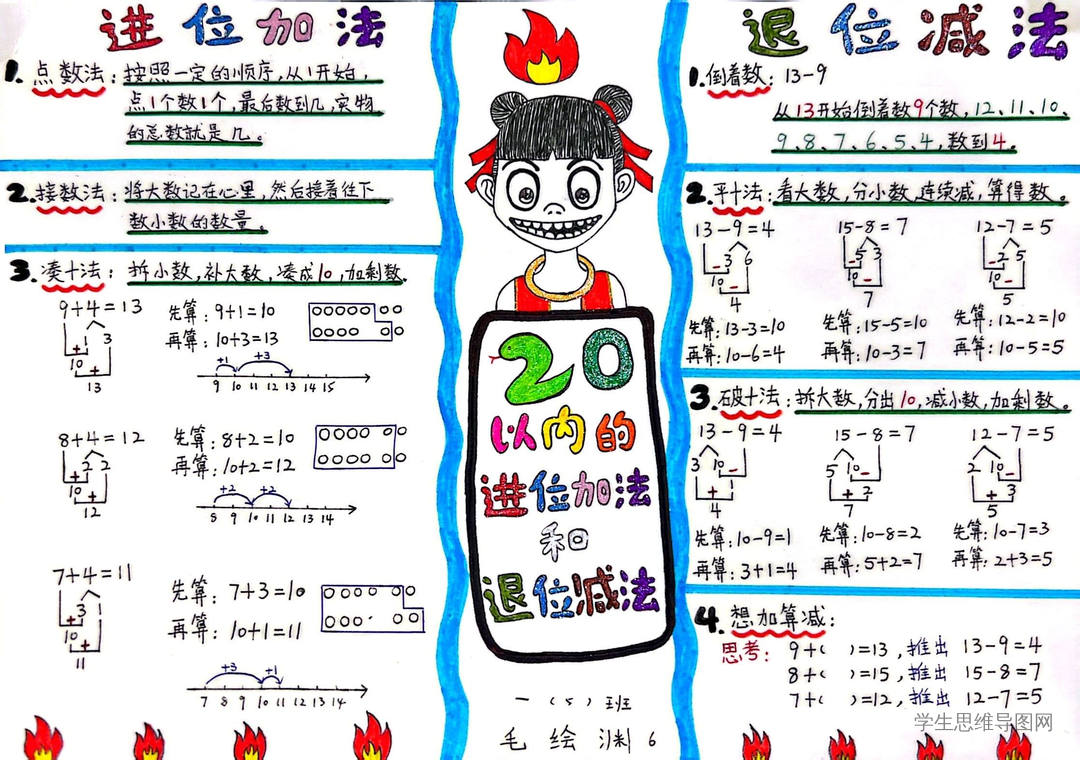 进位加法
1. 点数法：按照一定的顺序，从1开始，
点1个数1个，最后数到几，实物
的总数就是几。
2. 接数法：将大数记在心里，然后接着往下
数小数的数量。
3. 凑十法：拆小数，补大数，凑成10，加剩数。
9+4=13
1 3
10
13
先算：9+1=10
再算：10+3=13
+1 +3
9 10 11 12 13 14 15
8+4=12
2 2
10
12
先算：8+2=10
再算：10+2=12
+2 +2
8 9 10 11 12 13 14
7+4=11
3 1
10
11
先算：7+3=10
再算：10+1=11
+3 +1
7 8 9 10 11 12 13 14
20
以内的
进位加法
和
退位减法
一（5）班
毛绘渊 6
退位减法
1. 倒着数：13-9
从13开始倒着数9个数，12、11、10、
9、8、7、6、5、4，数到4。
2. 平十法：看大数，分小数，连续减，算得数。
13-9=4 15-8=7 12-7=5
3 6 5 3 2 5
10 10 10
4 7 5
先算：13-3=10 先算：15-5=10 先算：12-2=10
再算：10-6=4 再算：10-3=7 再算：10-5=5
3. 破十法：拆大数，分出10，减小数，加剩数。
13-9=4 15-8=7 12-7=5
3 10 5 10 2 10
1 2 3
4 7 5
先算：10-9=1 先算：10-8=2 先算：10-7=3
再算：3+1=4 再算：5+2=7 再算：2+3=5
4. 想加算减：
思考：9+( )=13，推出 13-9=4
8+( )=15，推出 15-8=7
7+( )=12，推出 12-7=5
学生思维导图网